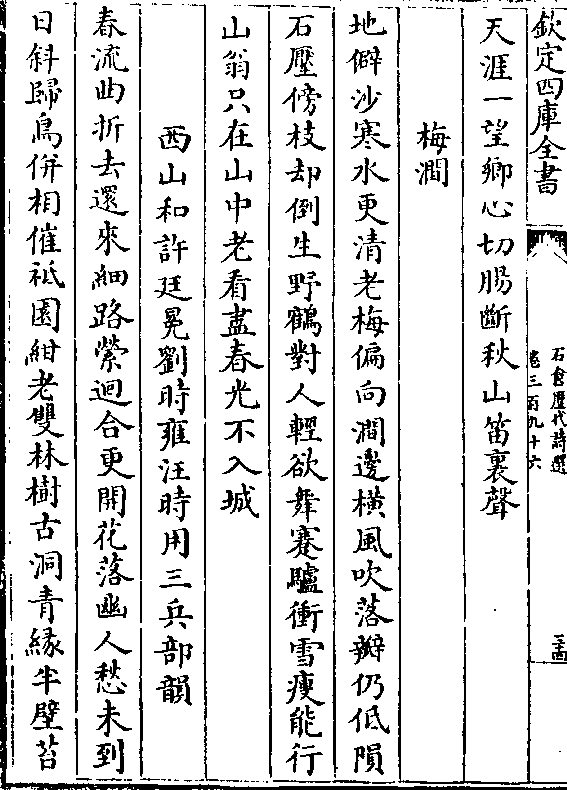 欽定四庫全書
石倉歷代詩選
卷三百九十六
天涯一望鄉心切腸斷秋山笛裏聲
梅澗
地僻沙寒水更清老梅偏向澗邊橫風吹落瓣仍低隕
石壓傍枝却倒生野鶴對人輕欲舞蹇驢衝雪瘦能行
山翁只在山中老看盡春光不入城
西山和許廷冕劉時雍汪時用三兵部韻
春流曲折去還來細路縈迴合更開花落幽人愁未到
日斜歸鳥併相催祗園紺老雙林樹古洞青緣半壁苔